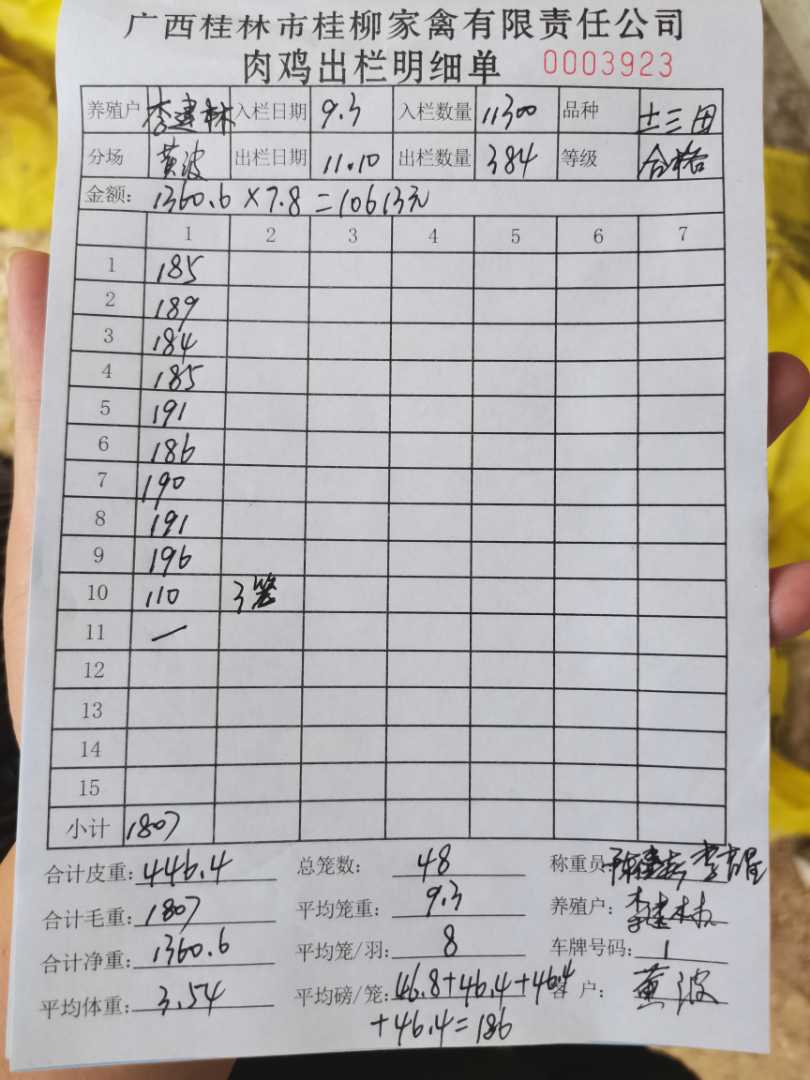 广西桂林市桂柳家禽有限责任公司
肉鸡出栏明细单 0003923
养殖户 李建林 入栏日期 9.3 入栏数量 11300 品种 土三田
分场 黄波 出栏日期 11.10 出栏数量 384 等级 合格
金额: 1360.6×7.8=10613元
1 2 3 4 5 6 7
1 185
2 189
3 184
4 185
5 191
6 186
7 190
8 191
9 196
10 110 3笼
11 一
12
13
14
15
小计 1807
合计皮重: 446.4 总笼数: 48 称重员:
合计毛重: 1807 平均笼重: 9.3 养殖户: 李建林
合计净重: 1360.6 平均笼/羽: 8 车牌号码: 1
平均体重: 3.54 平均磅/笼: 46.8+46.4+46.4 客户: 黄波
+46.4=186